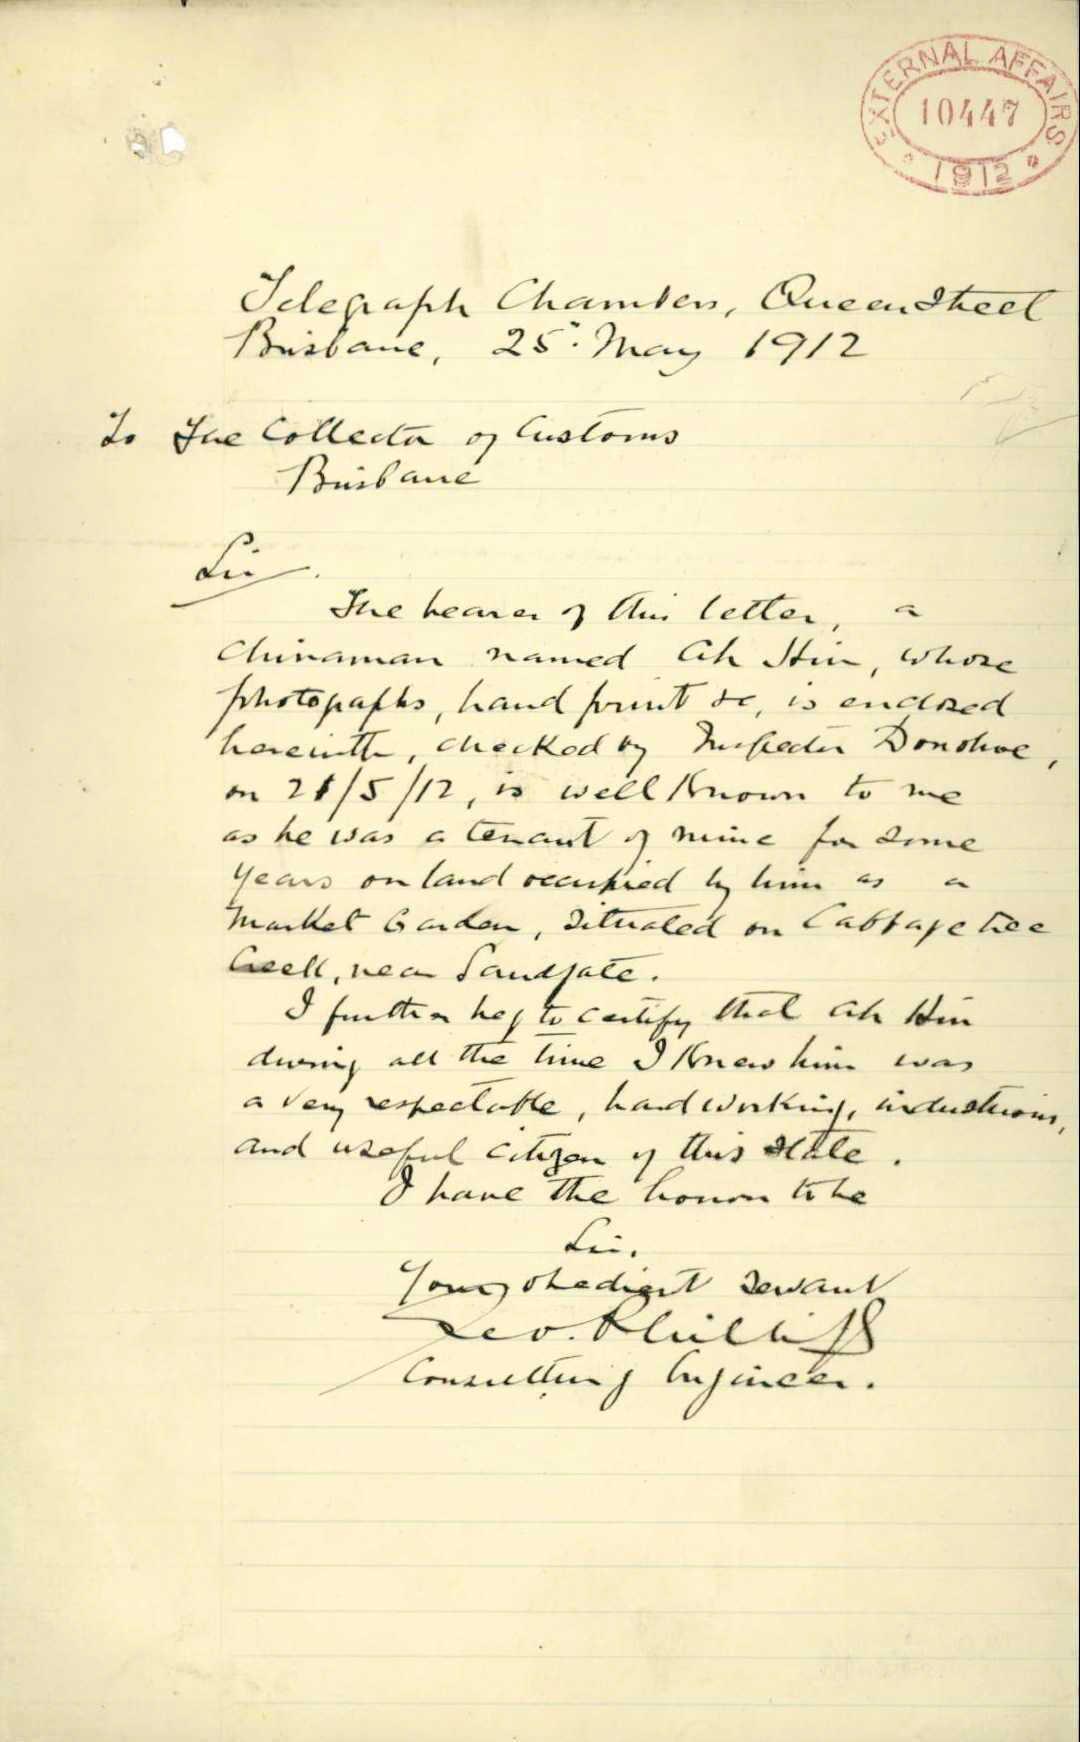 EXTERNAL AFFAIRS
10447
1912
Telegraph Chambers, Queen Street
Brisbane, 25" May 1912
To The Collector of Customs
Brisbane
Sir.
The bearer of this letter, a
Chinaman named Ah Hin, whose
photographs, hand print &c, is enclosed
herewith, checked by Inspector Donohoe,
on 21/5/12, is well known to me
as he was a tenant of mine for some
years on land occupied by him as a
Market Garden, situated on Cabbage tree
Creek, near Sandgate.
I further beg to certify that Ah Hin
during all the time I knew him was
a very respectable, hard working, industrious,
and useful citizen of this State.
I have the honor to be
Sir.
Your obedient servant
Geo. Phillips
Consulting Engineer.